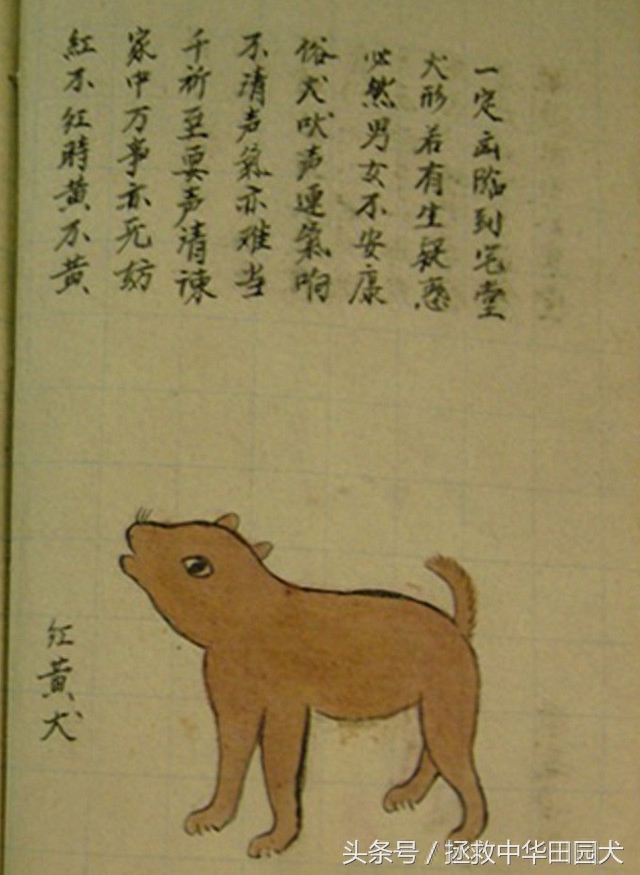 一定凶临到宅堂
犬形若有生疑惑
必然男女不安康
俗犬吠声連氣响
不清声氣亦难当
千祈至要声清谏
家中万事亦无妨
紅不红時黄不黄
红黄犬
头条号／拯救中华田园犬